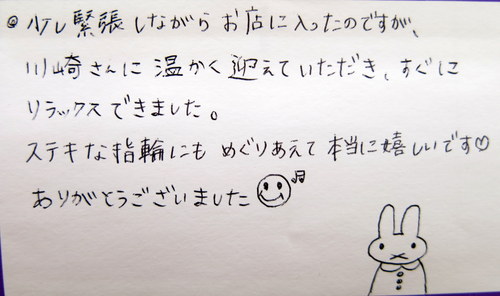 ◎少し緊張しながらお店に入ったのですが、
川崎さんに温かく迎えていただき、すぐに
リラックスできました。
ステキな指輪にもめぐりあえて本当に嬉しいです♡
ありがとうございました☺♫